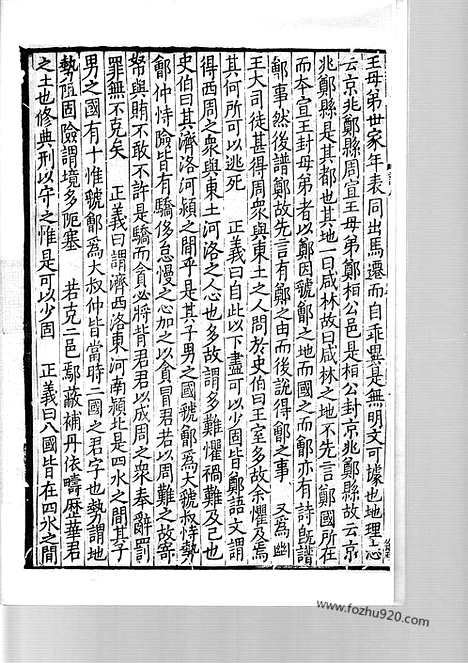 王母弟世家年表同出馬遷而自乖異是無明文可據也地理志
云京兆鄭縣周宣王母弟鄭桓公邑是桓公封京兆鄭縣故云京
兆鄭縣是其都也其地一曰咸林故曰咸林之地不先言鄭國所在
而本宣王封母弟者以鄭因虢鄶之地而國之而鄶亦有詩旣譜
鄶事然後譜鄭故先言有鄭之由而後說得鄶之事 又爲幽
王大司徒甚得周衆與東土之人問於史伯曰王室多故余懼及焉
其何所可以逃死 正義曰自此以下盡可以少固皆鄭語文謂
得西周之衆與東土河洛之人心也多故謂多難懼禍難及己也
史伯曰其濟洛河潁之間乎是其子男之國虢鄶爲大虢叔恃勢
鄶仲恃險皆有驕侈怠慢之心加之以貪冒君若以周難之故寄
帑與賄不敢不許是驕而貪必將背君君以成周之衆奉辭罰
罪無不克矣 正義曰謂濟西洛東河南潁北是四水之間其子
男之國有十惟虢鄶爲大叔仲皆當時二國之君字也勢謂地
勢阻固險謂境多阨塞 若克二邑鄢蔽補丹依疇歷華君
之土也修典刑以守之惟是可以少固 正義曰八國皆在四水之間
www.fozhu920.com